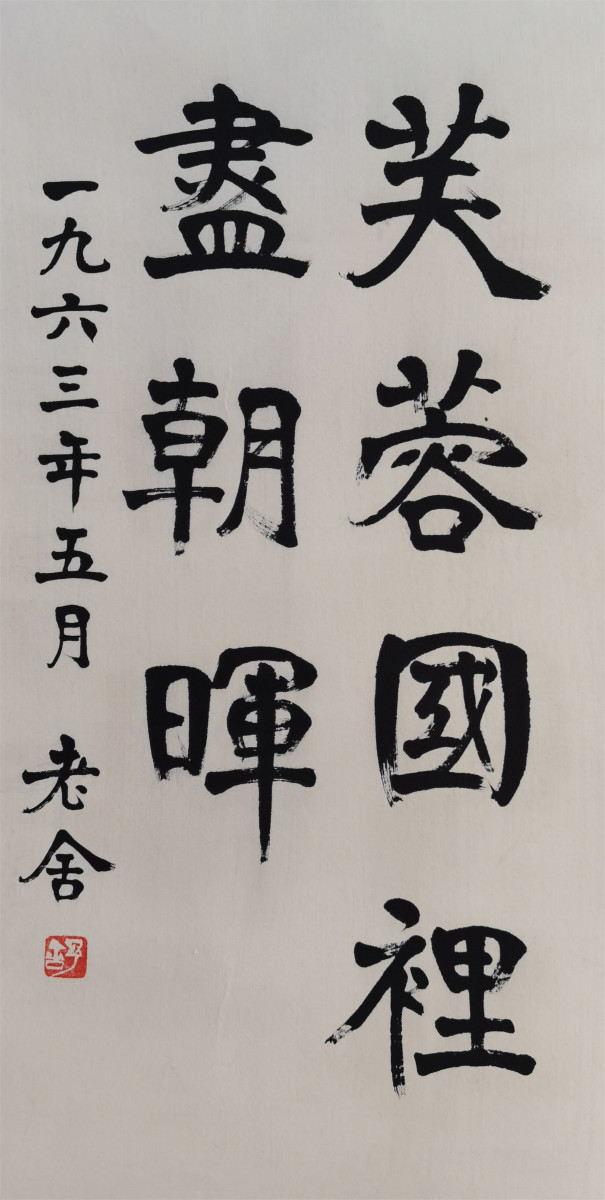 芙蓉國裡
盡朝暉
一九六三年五月 老舍
舒